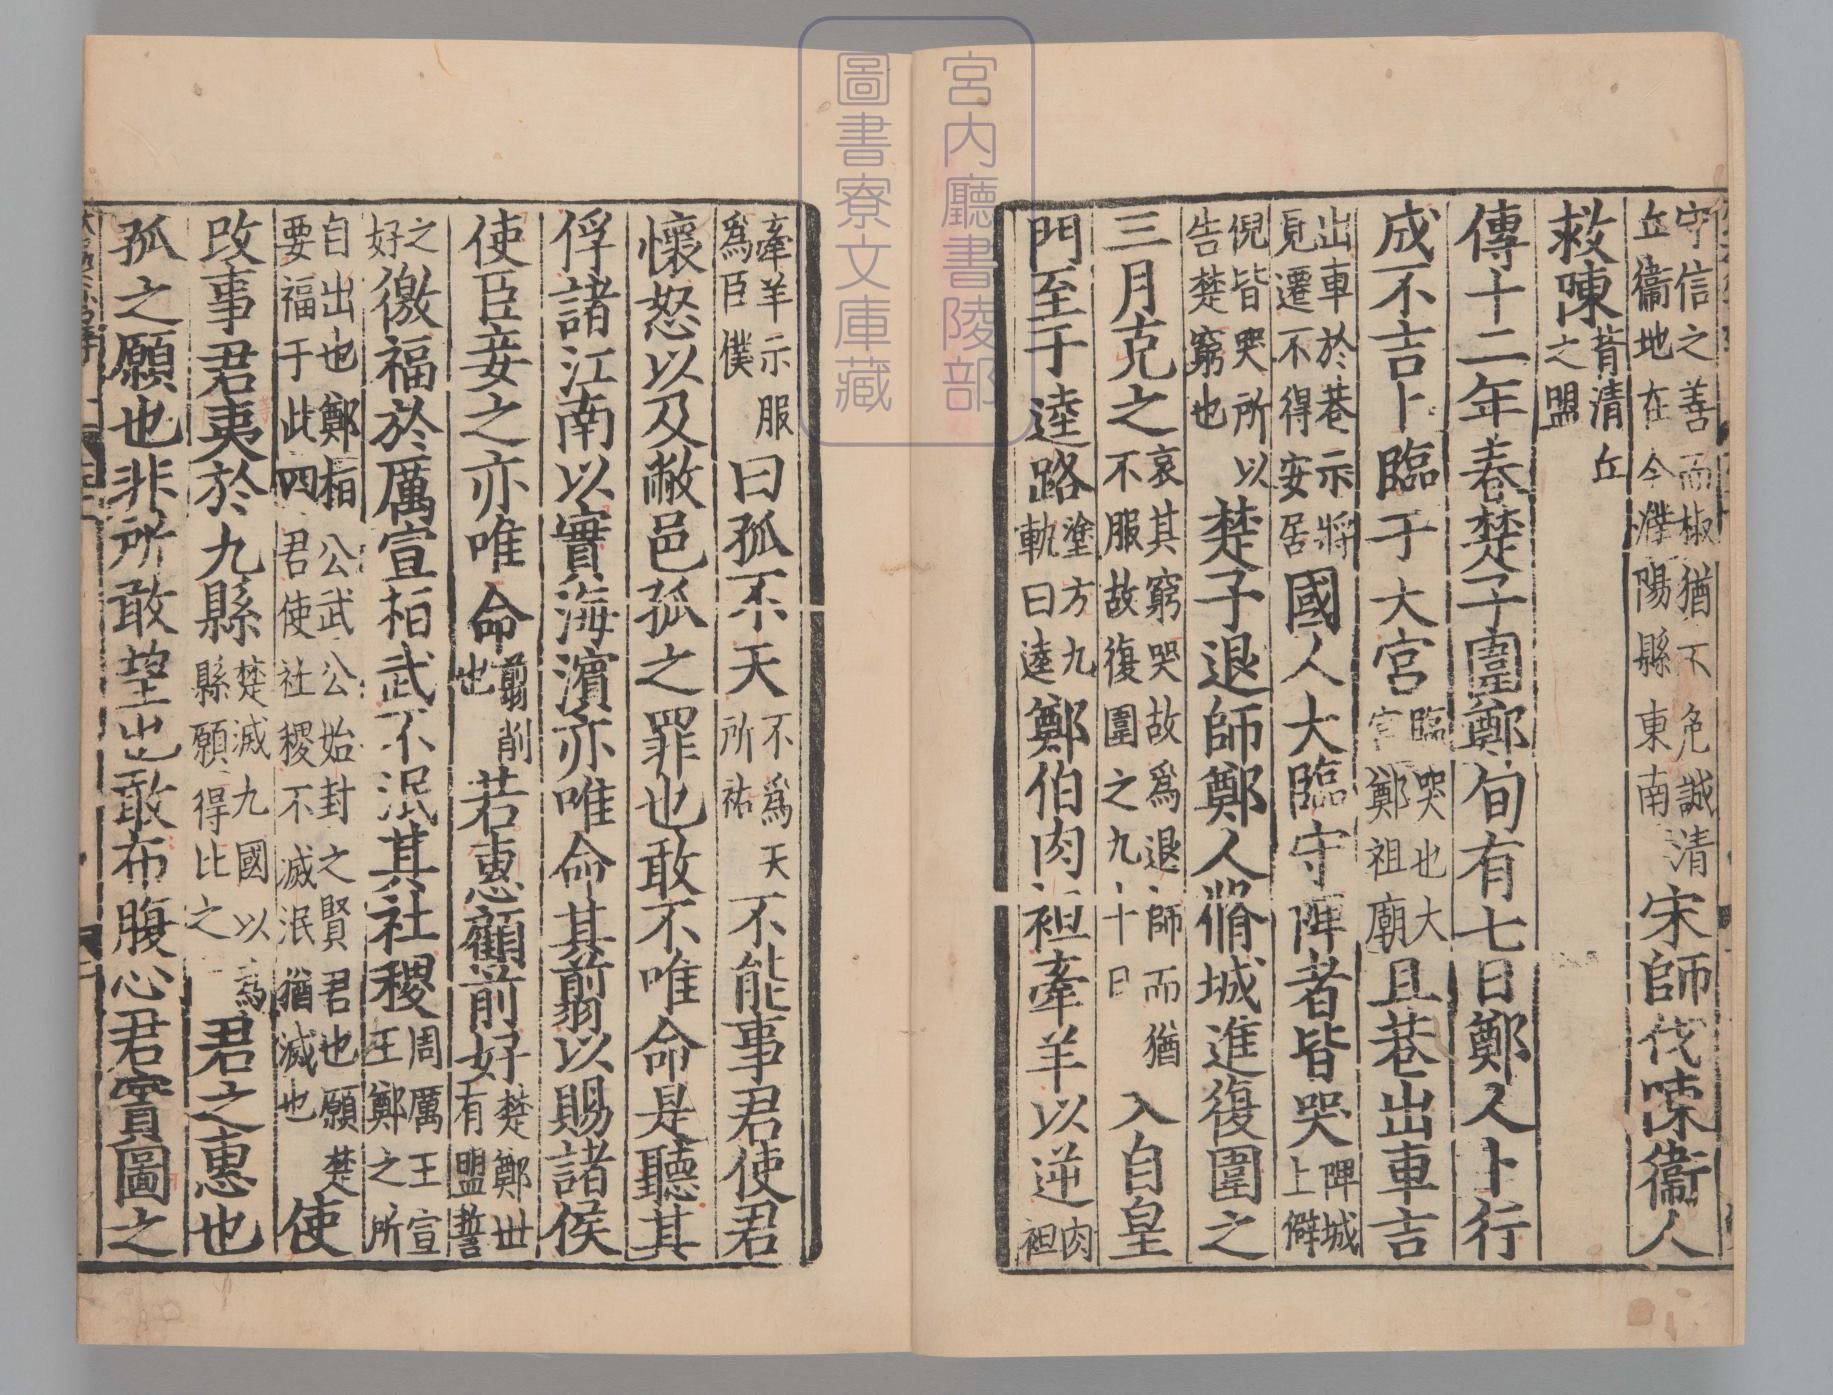 守信之善而椒猶不免誠清
丘衞地在今濮陽縣東南
宋師伐陳衞人
救陳
背清丘
之盟
傳十二年春楚子圍鄭旬有七日鄭人卜行
成不吉卜臨于大宮
臨哭也大
宮鄭祖廟
且巷出車吉
出車於巷示將
見遷不得安居
國人大臨守陴者皆哭
陴城
上僻
倪皆哭所以
告楚窮也
楚子退師鄭人脩城進復圍之
三月克之
哀其窮哭故爲退師而猶
不服故復圍之九十日
入自皇
門至于逵路
塗方九
軌曰逵
鄭伯肉袒牽羊以逆
肉
袒
牽羊示服
爲臣僕
曰孤不天
不爲天
所祐
不能事君使君
懷怒以及敝邑孤之罪也敢不唯命是聽其
俘諸江南以實海濱亦唯命其翦以賜諸侯
使臣妾之亦唯命
翦削
也
若惠顧前好
楚鄭世
有盟誓
之
好
徼福於厲宣桓武不泯其社稷
周厲王宣
王鄭之所
自出也鄭桓公武公始封之賢君也願楚
要福于此四君使社稷不滅泯猶滅也
使
改事君夷於九縣
楚滅九國以爲
縣願得比之
君之惠也
孤之願也非所敢望也敢布腹心君實圖之
宮内廳書陵部
圖書寮文庫藏